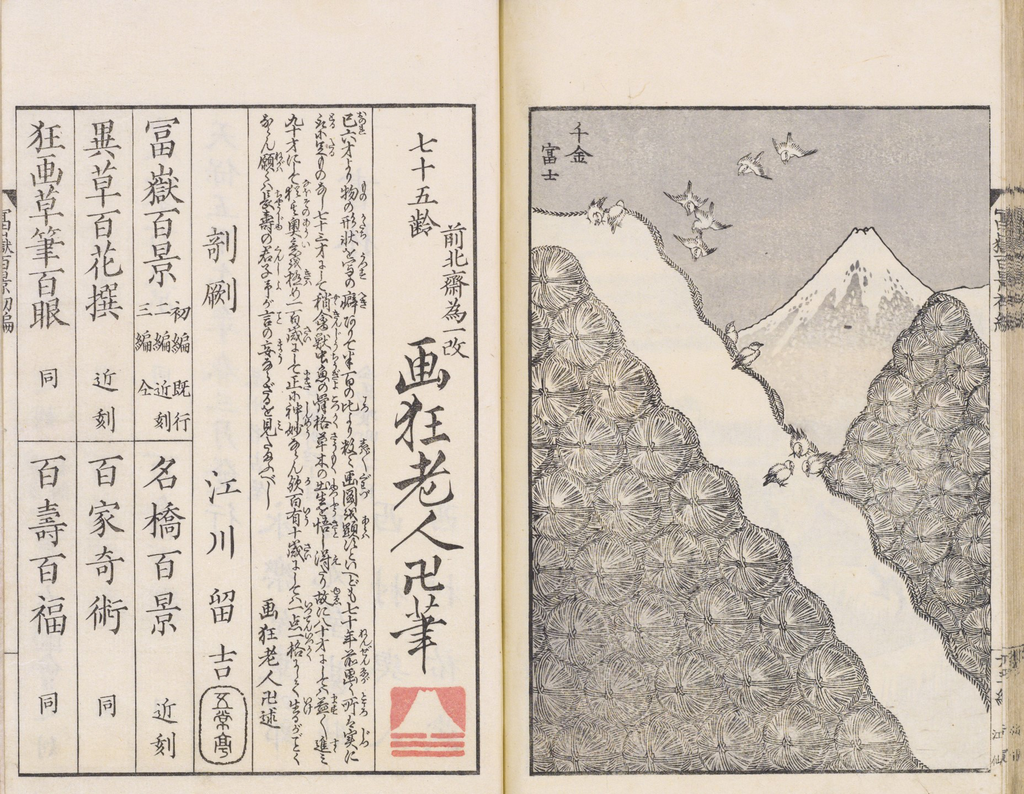 千金
富士
七十五齢
前北斎為一改
画狂老人卍筆
己六才より物の形状を写の癖ありて半百の比より数々画図を顕すといへども七十年前画く所は実に
取に足ものなし七十三才にして稍禽獣虫魚の骨格草木の出生を悟し得たり故に八十才にしては益々進み
九十才にして猶其奥意を極め一百歳にして正に神妙ならん歟百有十歳にしては一点一格にして生るがごとく
ならん願くは長寿の君子予が言の妄ならざるを見たまふべし 画狂老人卍述
剞劂 江川留吉 五常亭
冨嶽百景 初編 既行 二編 近刻 三編 仝
名橋百景 近刻
異草百花撰 近刻
百家奇術 同
狂画草筆百眼 同
百壽百福 同
冨嶽百景初編